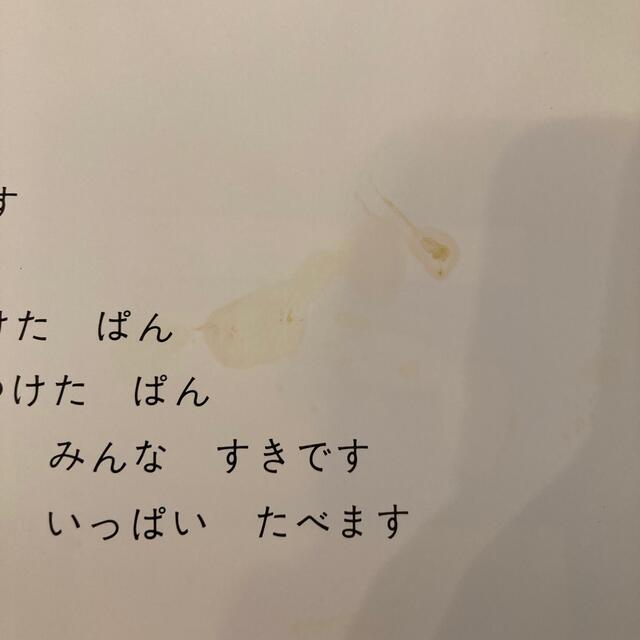 す
けた　ぱん
つけた　ぱん
みんな　すきです
いっぱい　たべます